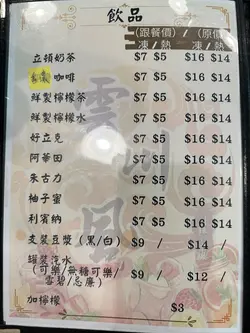 飲品
(跟餐價) / (原價)
凍/熱 凍/熱
立頓奶茶 $7 $5 $16 $14
咖啡 $7 $5 $16 $14
鮮製檸檬茶 $7 $5 $16 $14
鮮製檸檬水 $7 $5 $16 $14
好立克 $7 $5 $16 $14
阿華田 $7 $5 $16 $14
朱古力 $7 $5 $16 $14
柚子蜜 $7 $5 $16 $14
利賓納 $7 $5 $16 $14
支裝豆漿 (黑/白) $9 / $14 /
罐裝汽水 $9 / $12 /
(可樂/無糖可樂/
雪碧/忌廉)
加檸檬 $3